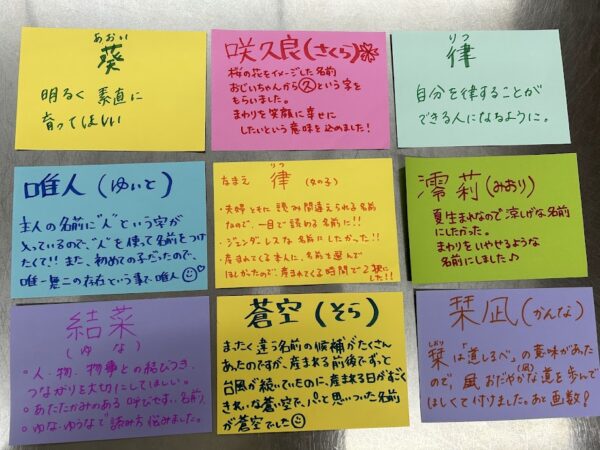 あおい
葵
明るく 素直に
育ってほしい
咲久良(さくら)
桜の花をイメージした名前
おじいちゃんから久という字を
もらいました。
まわりを笑顔に 幸せに
したいという意味を込めました!
りつ
律
自分を律することが
できる人になるように。
唯人(ゆいと)
主人の名前に"人"という字が
入っているので、"人"を使って名前をつけ
たくて!!また、初めての子だったので、
唯一無二の存在という事で、唯人
なまえ 律(女の子)
りつ
・夫婦ともに 読み間違えられる名前
なので、一目で読める名前に!!
・ジェンダーレスな名前にしたかった!!
・産まれてくる本人に、名前を選んで
ほしかったので、産まれてくる時間で2択に
した!!
澪莉(みおり)
夏生まれなので涼しげな名前
にしたかった。
まわりをいやせるような
名前にしました♪
結菜
(ゆな)
・人、物、物事との結びつき、
つながりを大切にしてほしい。
・あたたかみのある 呼びやすい名前。
・ゆな・ゆうなで読み方悩みました。
蒼空(そら)
まったく違う名前の候補がたくさん
あったのですが、産まれる前後でずっと
台風が続いていたのに、産まれる日がすごく
きれいな蒼空で、パッと思いついた名前
が蒼空でした
栞凪(かんな)
しおり
栞は"道しるべ"の意味があった
ので、風(凪)おだやかな道を歩んで
ほしくて付けました。あと画数!